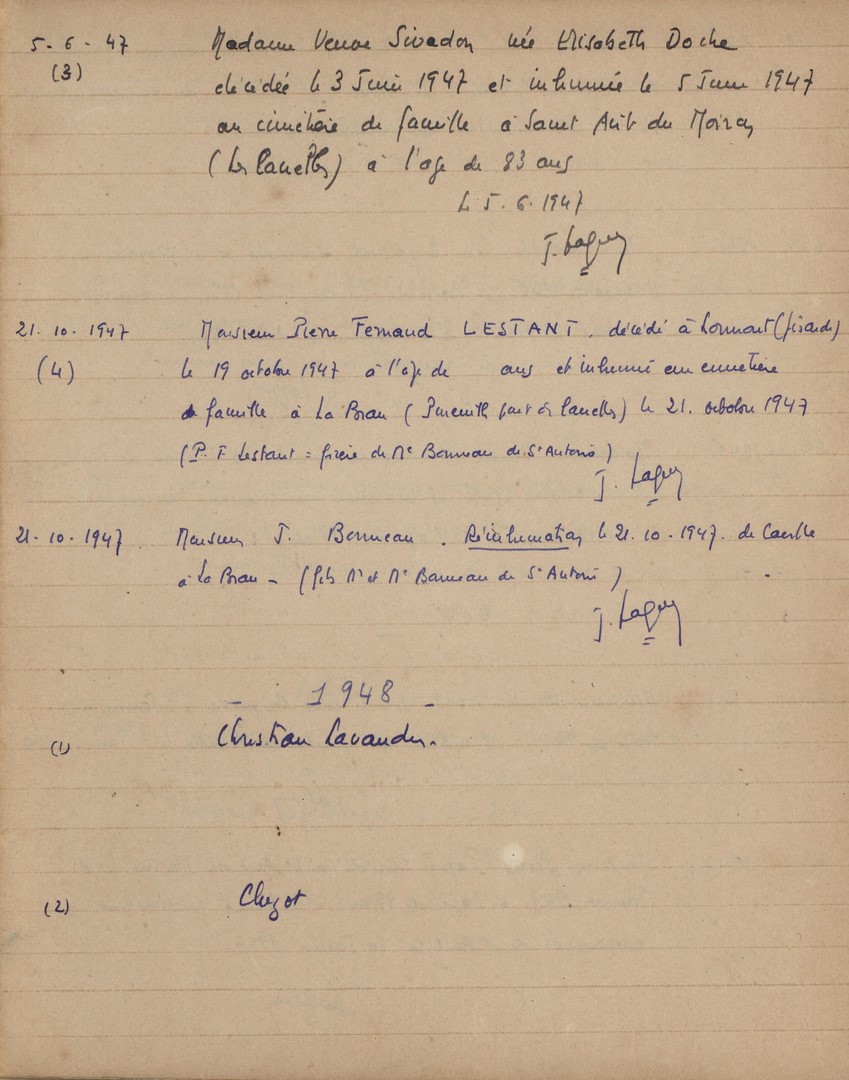 5-6-47 Madame Veuve Sivadon née Elisabeth Doche
(3) décédée le 3 Juin 1947 et inhumée le 5 Juin 1947
au cimetière de famille à Saint Aub. de Moiray
(les lavettes) à l'age de 83 ans
le 5.6.1947
J. Laguy
21.10-1947 Monsieur Pierre Fernand LESTANT. décédé à Lormont (gironde)
(4) le 19 octobre 1947 à l'age de ans et inhumé au cimetière
de famille à La Brau ( ) le 21. octobre 1947
(P. F Lestant = frère de Me Bonneau de St Antoine)
J. Laguy
21-10-1947. Monsieur J. Bonneau. Réinhumation le 21.10-1947. de
à La Brau - (fils Mr et Me Bonneau de St Antoine)
J. Laguy
- 1948 -
(1) Christian Lavandes.
(2) Chizot